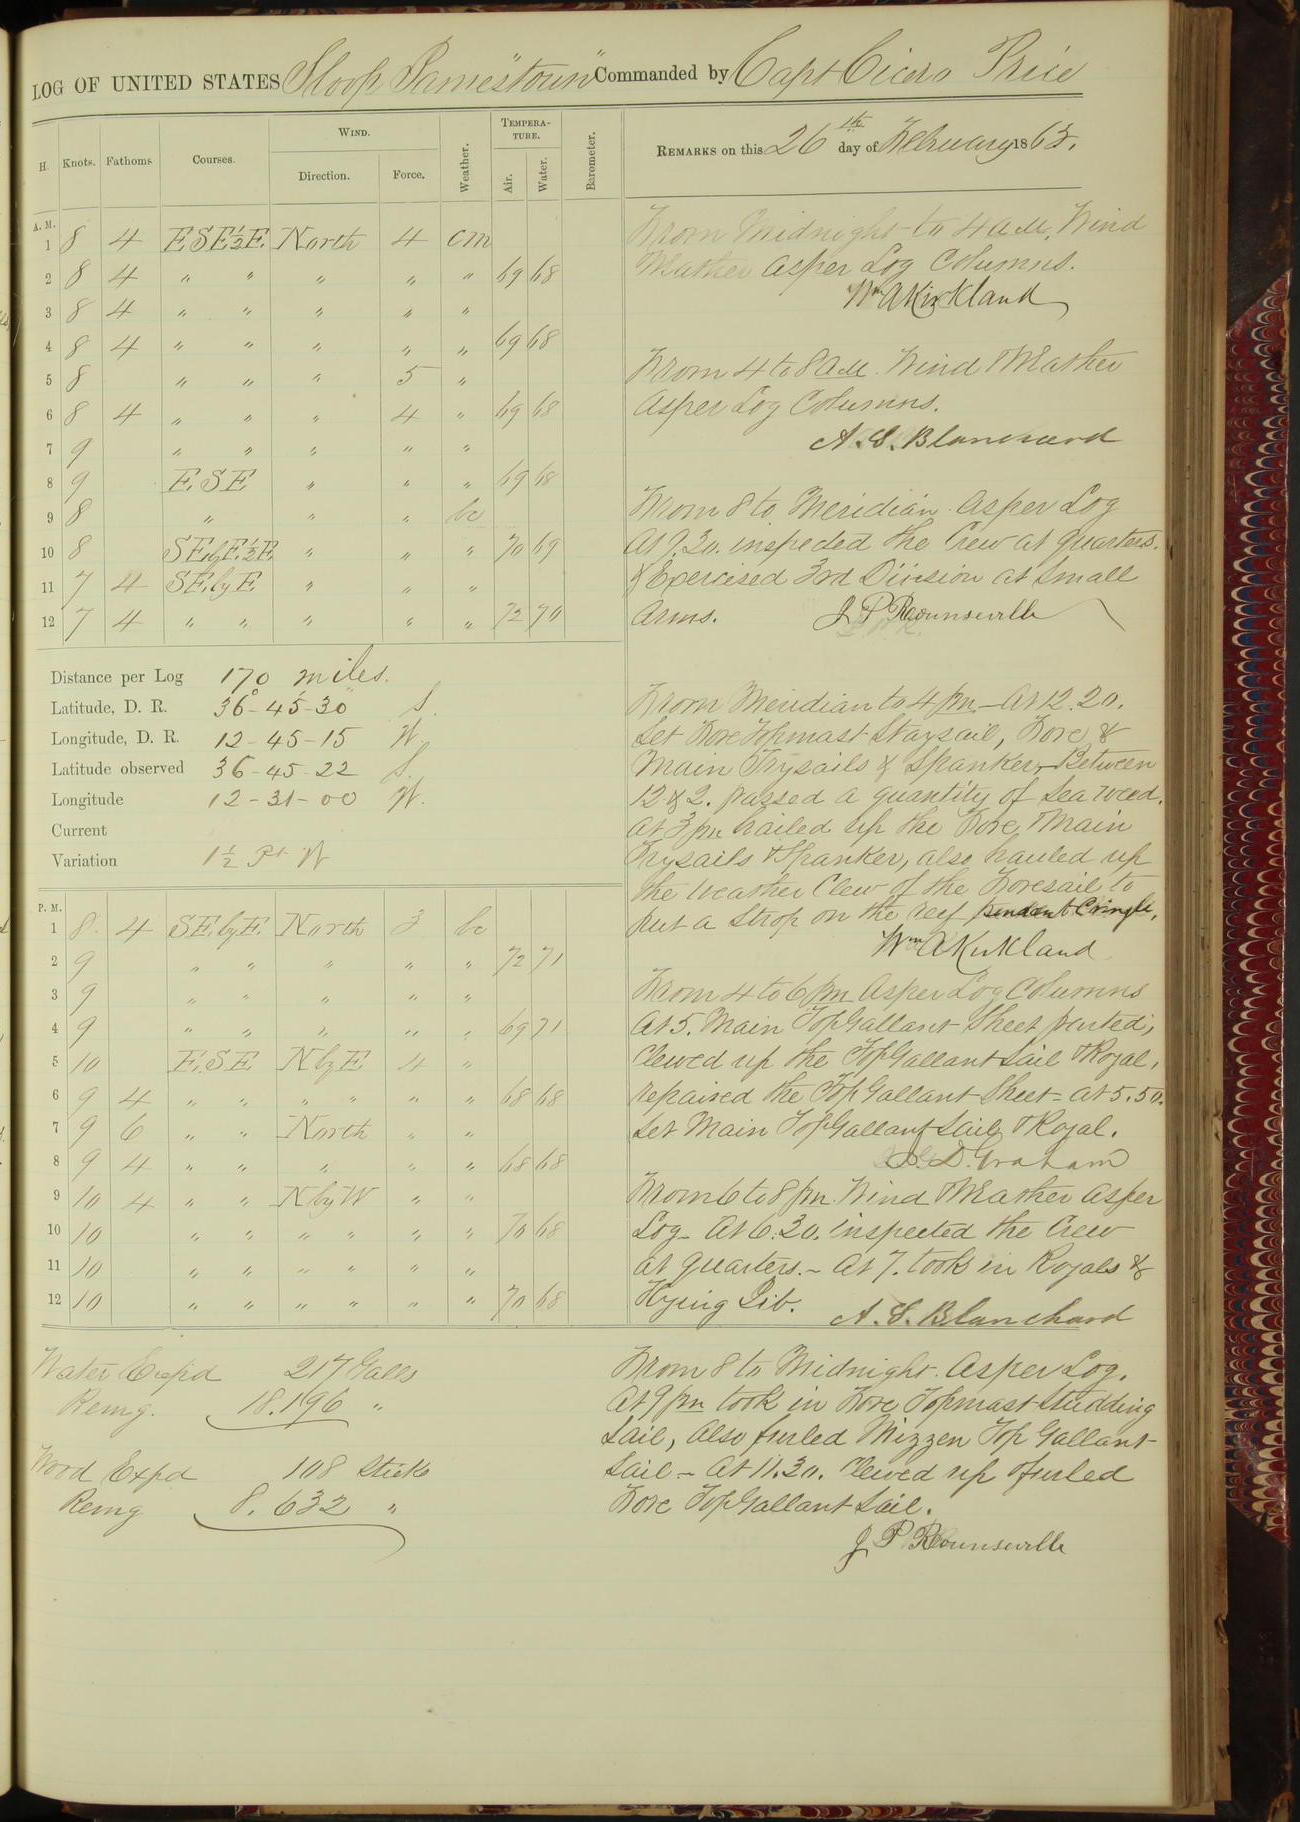 LOG OF UNITED STATES Sloop "Jamestown" Commanded by Capt Cicero Price
H. Knots. Fathoms Courses. WIND. Direction. Force. Weather. TEMPERATURE. Air. Water. Barometer.
REMARKS on this 26th day of February 1863.
A. M.
1 8 4 E.S.E.½E. North 4 cm
2 8 4 " " " " " 69 68
3 8 4 " " " " "
4 8 4 " " " " " 69 68
5 8 " " " 5 "
6 8 4 " " " 4 " 69 68
7 9 " " " " "
8 9 E.S.E " " " 69 68
9 8 " " " bc
10 8 SE.byE.½E. " " " 70 69
11 7 4 SE.byE. " " "
12 7 4 " " " " " 72 70
From Midnight to 4 AM, Wind
Weather as per Log Columns.
Wm A Kirkland
From 4 to 8 AM. Wind & Weather
as per Log Columns.
A. S. Blanchard
From 8 to Meridian as per Log
At 9.30. inspected the Crew at quarters.
& Exercised 3rd Division at Small
Arms. J P Rounseville
Distance per Log 170 miles.
Latitude, D. R. 36°-45'-30" S.
Longitude, D. R. 12-45-15 W.
Latitude observed 36-45-22 S.
Longitude 12-31-00 W.
Current
Variation 1½ Pt W
From Meridian to 4 pm - At 12.20.
Set Fore Topmast Staysail, Fore &
Main Trysails & Spanker, Between
12 & 2. passed a quantity of Sea Weed.
At 3 pm hailed up the Fore, & Main
Trysails & Spanker, also hauled up
the Weather Clew of the Foresail to
put a Strop on the reef pendant Cringle.
Wm A Kirkland
P. M.
1 8 4 SE.byE. North 3 bc
2 9 " " " " " 72 71
3 9 " " " " "
4 9 " " " " " 69 71
5 10 E.S.E NbyE 4 "
6 9 4 " " " " " " 68 68
7 9 6 " " North " "
8 9 4 " " " " " 68 68
9 10 4 " " NbyW " "
10 10 " " " " " " 70 68
11 10 " " " " " "
12 10 " " " " " " 70 68
From 4 to 6 pm as per Log Columns
At 5. Main TopGallant Sheet parted,
Clewed up the TopGallant Sail & Royal,
repaired the Top Gallant Sheet - at 5.50.
Set Main TopGallant Sail & Royal.
D. Graham
From 6 to 8 pm. Wind & Weather as per
Log - At 6.30. inspected the Crew
at quarters. - At 7. took in Royals &
Flying Jib. A. S. Blanchard
Water Expd 217 Galls
Remg. 18.196 "
Wood Expd 108 Sticks
Remg 8.632 "
From 8 to Midnight. as per Log.
At 9 pm took in Fore Topmast Studding
Sail, also furled Mizzen Top Gallant
Sail - At 11.30. Clewed up & furled
Fore TopGallant Sail.
J P Rounseville